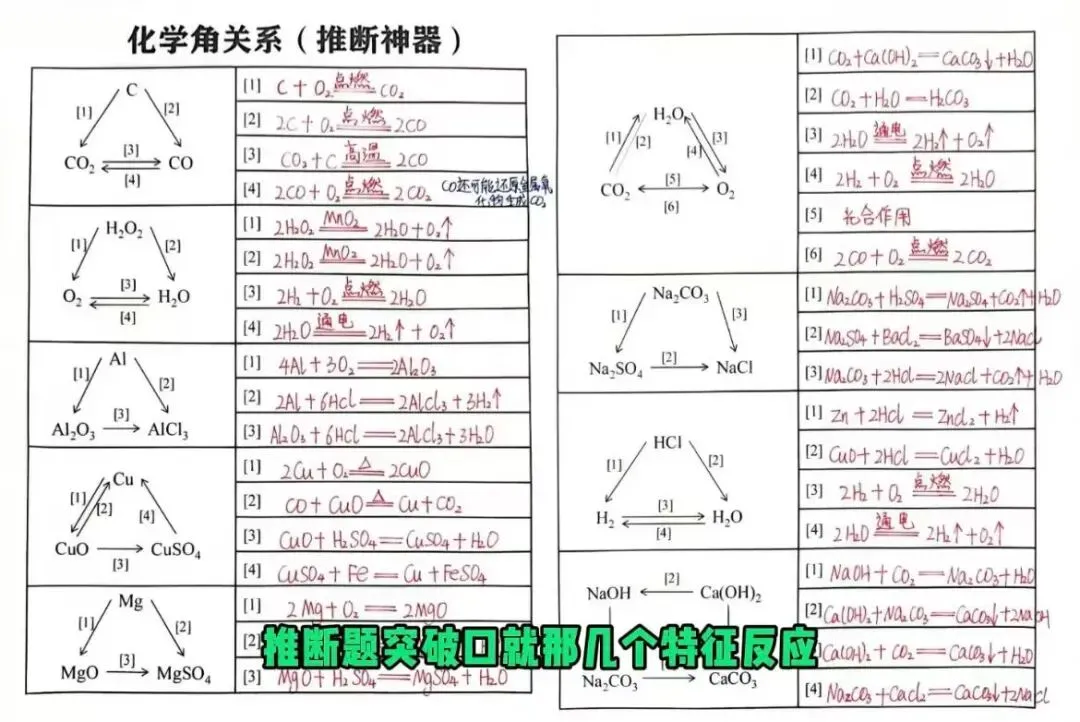 化学角关系（推断神器）
C
[1] [2]
CO₂ [3] CO
[4]
[1] C + O₂ 点燃 CO₂
[2] 2C + O₂ 点燃 2CO
[3] CO₂ + C 高温 2CO
[4] 2CO + O₂ 点燃 2CO₂
CO还可能还原金属氧
化物生成CO₂
H₂O₂
[1] [2]
O₂ [3] H₂O
[4]
[1] 2H₂O₂ MnO₂ 2H₂O + O₂↑
[2] 2H₂O₂ MnO₂ 2H₂O + O₂↑
[3] 2H₂ + O₂ 点燃 2H₂O
[4] 2H₂O 通电 2H₂↑ + O₂↑
Al
[1] [2]
Al₂O₃ [3] AlCl₃
[1] 4Al + 3O₂ == 2Al₂O₃
[2] 2Al + 6HCl == 2AlCl₃ + 3H₂↑
[3] Al₂O₃ + 6HCl == 2AlCl₃ + 3H₂O
Cu
[1] [2] [4]
CuO [3] CuSO₄
[1] 2Cu + O₂ △ 2CuO
[2] CO + CuO △ Cu + CO₂
[3] CuO + H₂SO₄ == CuSO₄ + H₂O
[4] CuSO₄ + Fe == Cu + FeSO₄
Mg
[1] [2]
MgO [3] MgSO₄
[1] 2Mg + O₂ == 2MgO
[2]
[3] MgO + H₂SO₄ == MgSO₄ + H₂O
H₂O
[1] [2] [3] [4]
CO₂ [5] O₂
[6]
[1] CO₂ + Ca(OH)₂ == CaCO₃↓ + H₂O
[2] CO₂ + H₂O == H₂CO₃
[3] 2H₂O 通电 2H₂↑ + O₂↑
[4] 2H₂ + O₂ 点燃 2H₂O
[5] 光合作用
[6] 2CO + O₂ 点燃 2CO₂
Na₂CO₃
[1] [3]
Na₂SO₄ [2] NaCl
[1] Na₂CO₃ + H₂SO₄ == Na₂SO₄ + CO₂↑ + H₂O
[2] Na₂SO₄ + BaCl₂ == BaSO₄↓ + 2NaCl
[3] Na₂CO₃ + 2HCl == 2NaCl + CO₂↑ + H₂O
HCl
[1] [2]
H₂ [3] H₂O
[4]
[1] Zn + 2HCl == ZnCl₂ + H₂↑
[2] CuO + 2HCl == CuCl₂ + H₂O
[3] 2H₂ + O₂ 点燃 2H₂O
[4] 2H₂O 通电 2H₂↑ + O₂↑
NaOH [2] Ca(OH)₂
Na₂CO₃ [4] CaCO₃
[1] NaOH + CO₂ == Na₂CO₃ + H₂O
[2] Ca(OH)₂ + Na₂CO₃ == CaCO₃↓ + 2NaOH
Ca(OH)₂ + CO₂ == CaCO₃↓ + H₂O
[4] Na₂CO₃ + CaCl₂ == CaCO₃↓ + 2NaCl
推断题突破口就那几个特征反应